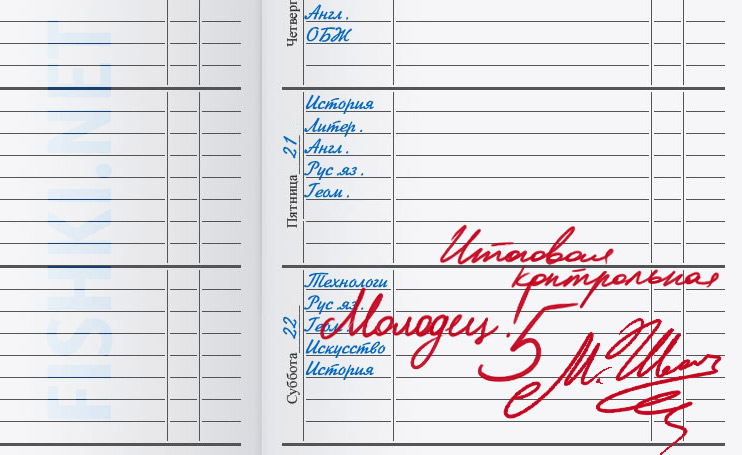 FISHKI.NET
Четверг
Англ.
ОБЖ
Пятница 21
История
Литер.
Англ.
Рус яз.
Геом.
Суббота 22
Технологи
Рус яз.
Геом.
Искусство
История
Итоговая
контрольная
Молодец!
5